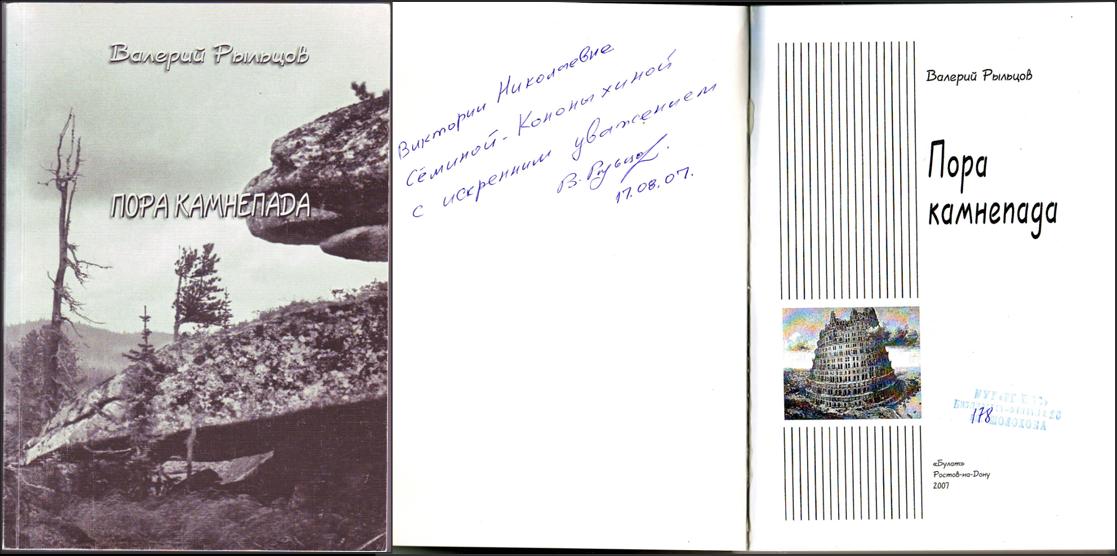 Валерий Рыльцов
ПОРА КАМНЕПАДА
Виктории Николаевне
Сёминой-Кононыхиной
с искренним уважением
В. Рыльцов
17.08.07.
Валерий Рыльцов
Пора
камнепада
178
«Булат»
Ростов-на-Дону
2007